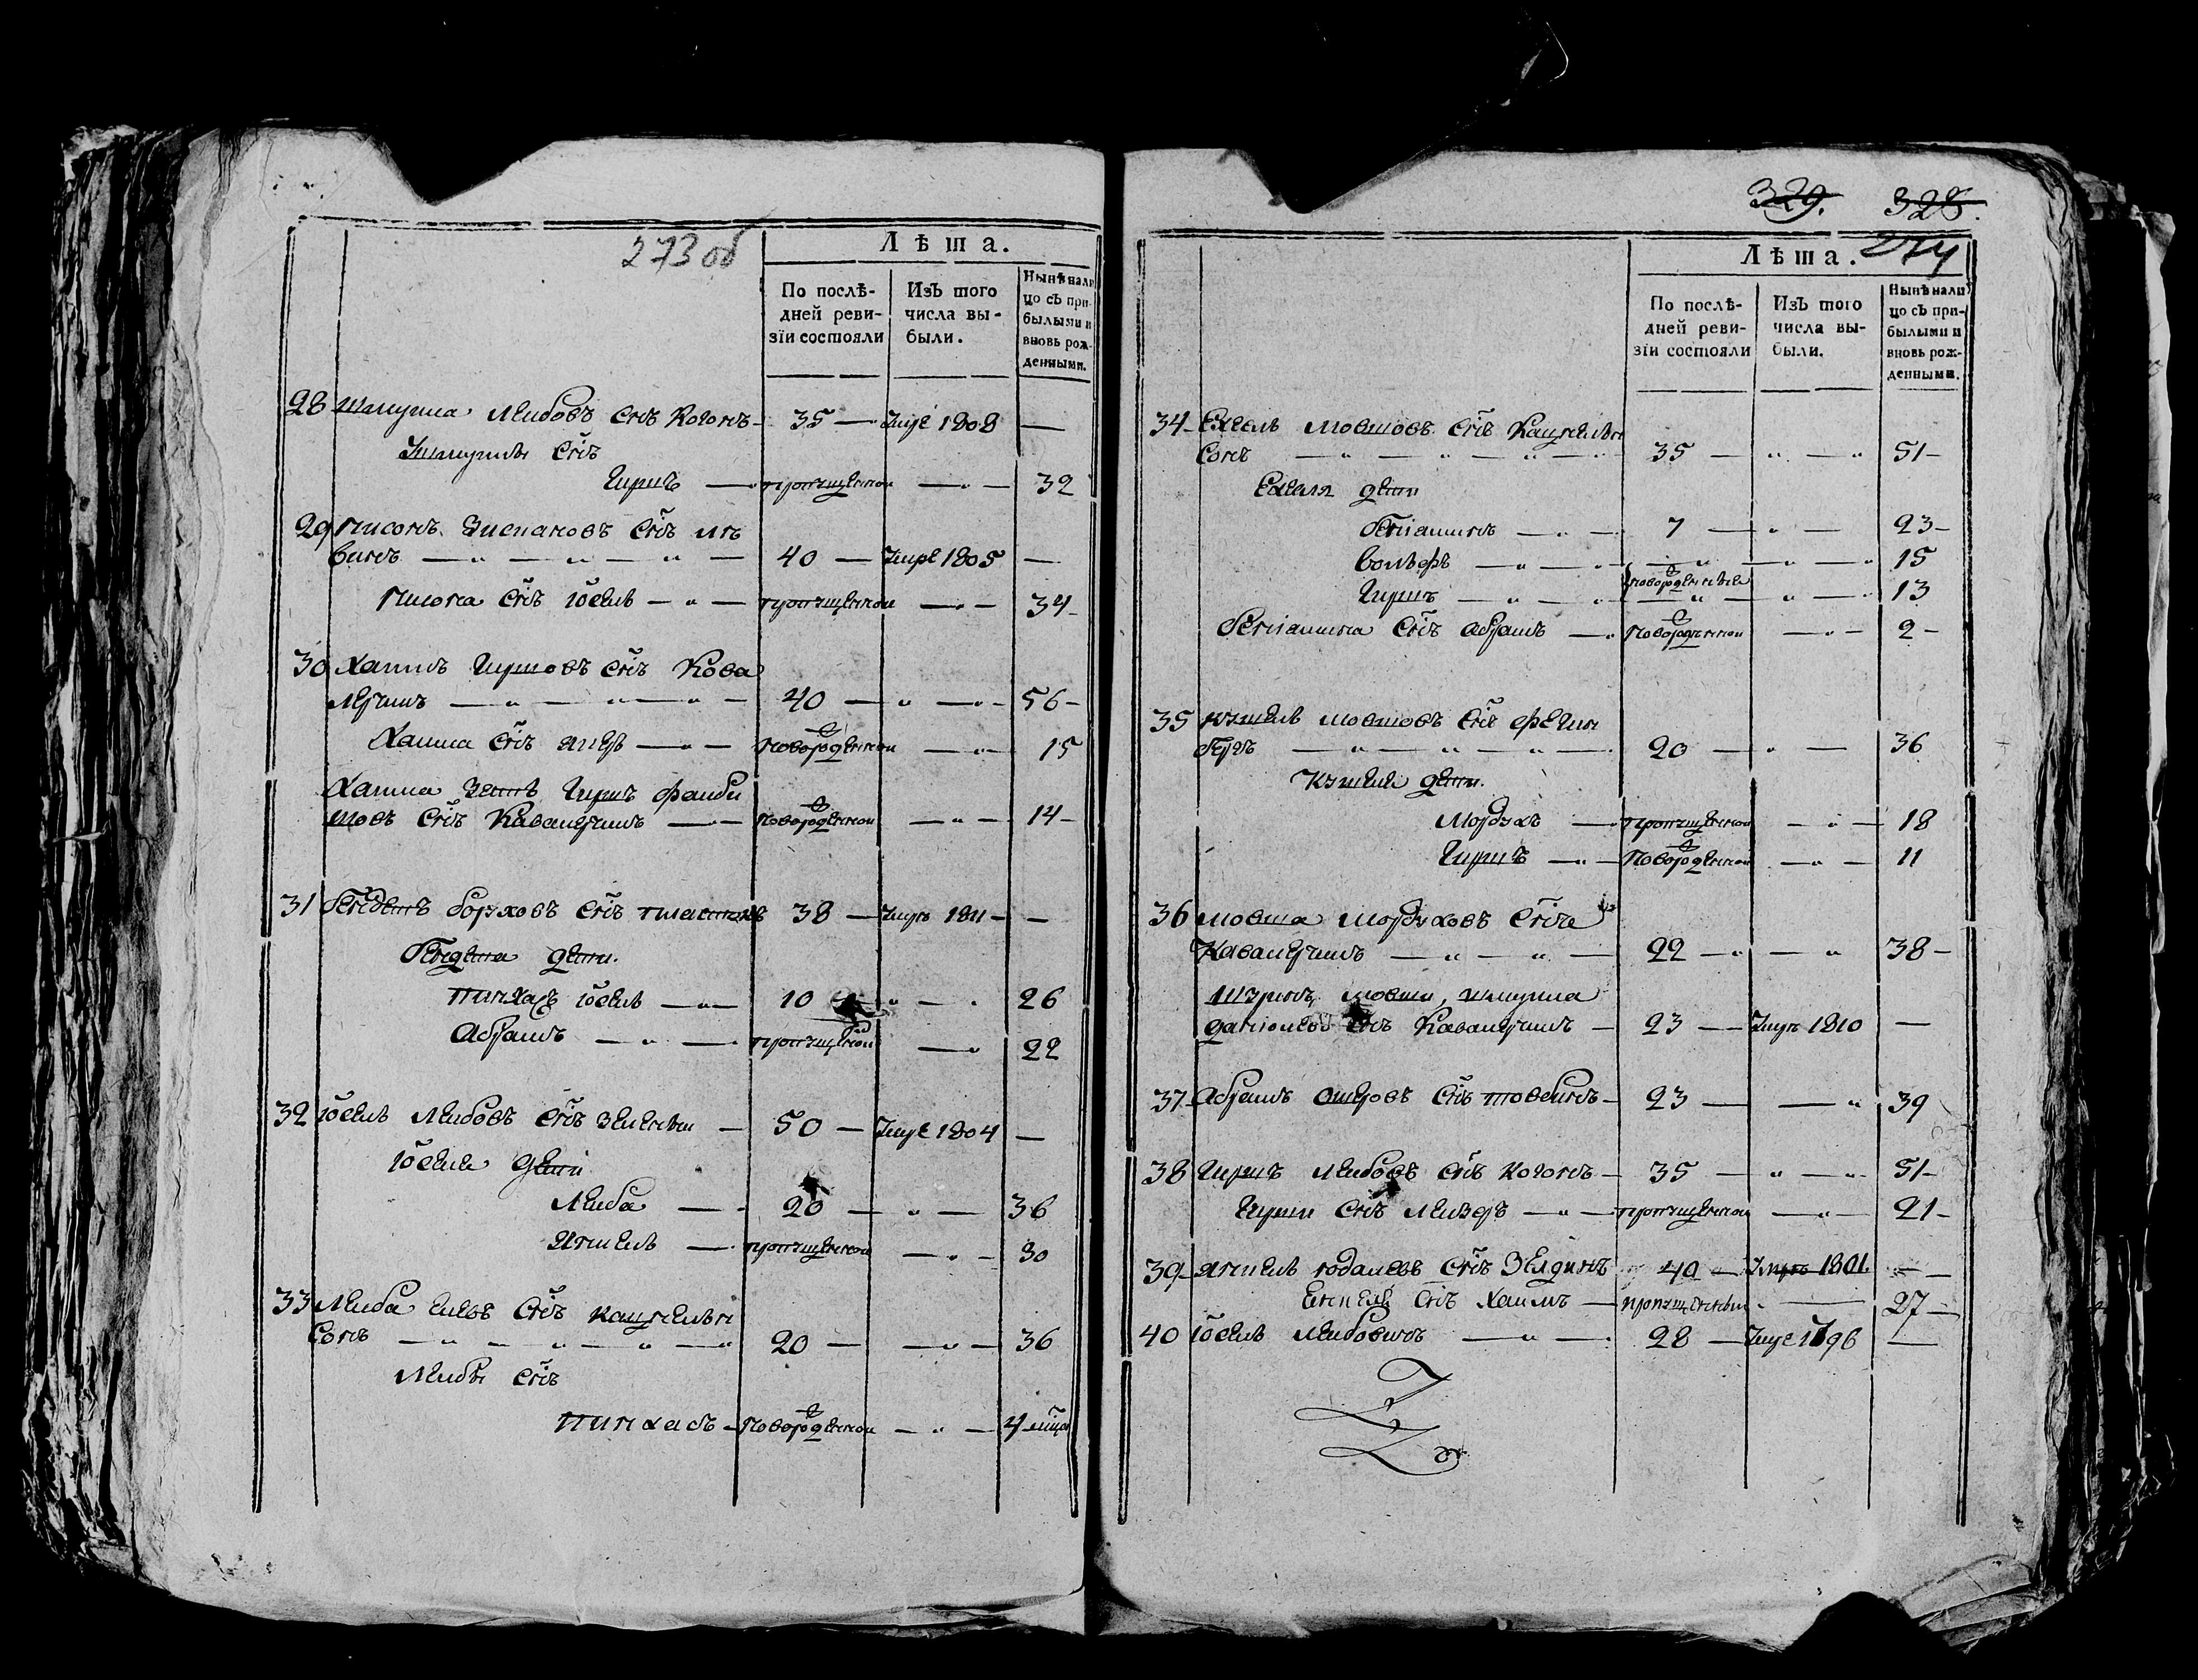 273 об
Лѣта.
По послѣ-
дней реви-
зіи состояли
Изъ того
числа вы-
были.
Нынѣ нали
цо съ при-
былыми и
вновь рож-
денными.
28 Шмуила Лейбовъ снъ Когонъ - 35 — умре 1808 —
Шмуилы снъ
Гиршъ — пропущенной — " — 32
29 Нисонъ снъ
винъ — " — " — " — 40 — умре 1805 —
Нисона снъ Іосель — " — пропущенной — " — 34 -
30 Хаимъ Гиршовъ снъ Кова
лерчикъ — " — " — " — 40 — " — " — 56 -
Хаима снъ — " — новорожденной — " — 15
Хаима зять Гиршъ Файби
шовъ снъ Кавалерчикъ — " — новорожденной — " — 14 -
31 Борховъ снъ 38 — умръ 1811 — —
дети.
Пинхасъ Іосель — " — 10 — " — 26
Абрамъ — " — пропущенной — " 22
32 Іосель Лейбовъ снъ — 50 — умре 1804 —
Іоселя дети
Лейба — 20 — " — 36
Янкель — пропущенной — " — 30
33 Лейба снъ Кацнельн
сонъ — " — " — " — " 20 — — " — 36
Лейбы снъ
Пинхасъ - новорожденной — " — 4 мѣца
329. 328.
274
Лѣта.
По послѣ-
дней реви-
зіи состояли
Изъ того
числа вы-
были.
Нынѣ нали
цо съ при-
былыми и
вновь рож-
денными.
34 - Ехель Мовшовъ снъ Кацнельн
сонъ — " — " — " — " 35 — " — " 51 -
Ехеля дети
Беніаминъ — " — 7 — " — 23 -
Вольфъ — " — " — " — " — " 15
Гиршъ — " — " новорожденные — " — " 13
Беніамина снъ Абрамъ — " новорожденной — " — 2 -
35 Кушель Мовшовъ снъ Фейн
бергъ — " — " — " — 20 — " — 36
Кушеля дети.
Мордухъ — пропущенной — " — 18
Гиршъ — " — новорожденной — " — 11
36 Мовша Мордуховъ снъ
Кавалерчикъ — " — " — 22 — " — " 38 -
Шмуила
снъ Кавалерчикъ — 23 — умръ 1810 —
37 - Абрамъ снъ - 23 — — " 39
38 Гиршъ Лейбовъ снъ Когонъ - 35 — " — " 51 -
Гирши снъ Лейзеръ — " — пропущенной — " — 21 -
39 - Янкель снъ Зелдинъ 40 — умръ 1801 — —
Енкеля снъ Хаимъ — пропущенный — 27 —
40 Іосель Лейбовичъ — " — 28 — умре 1796 —